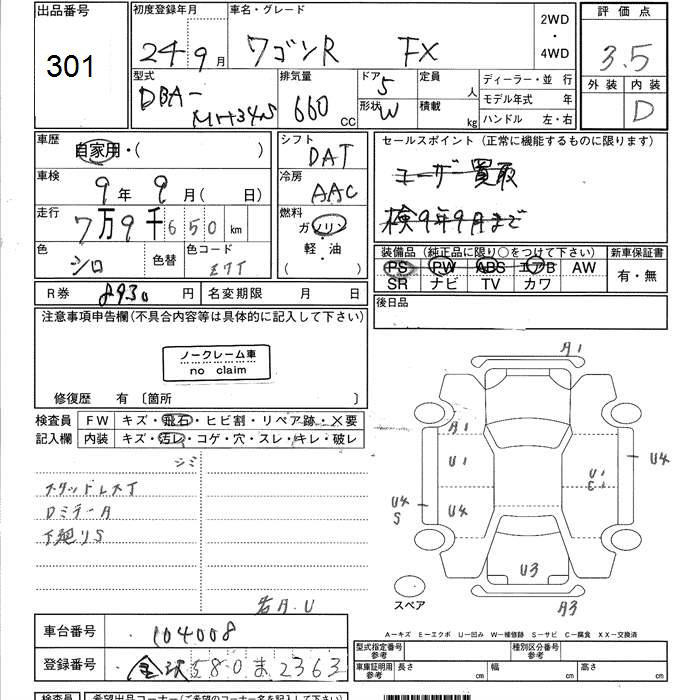 出品番号
301
初度登録年月
24年9月
車名・グレード
ワゴンR FX
2WD
・
4WD
評価点
3.5
外装 内装
D
型式
DBA-
MH34S
排気量
660 cc
ドア 5
形状 W
定員 人
積載 kg
ディーラー・並 行
モデル年式 年
ハンドル 左・右
車歴
自家用・( )
シフト
DAT
セールスポイント (正常に機能するものに限ります)
ユーザー買取
検9年9月まで
車検
9年 9月( 日)
冷房
AAC
走行
7万9千650km
燃料
ガソリン
軽・油
( )
色
シロ
色替
色コード
装備品 (純正品に限り○をつけて下さい)
PS PW ABS エアB AW
SR ナビ TV カワ
新車保証書
有・無
R券 8930円
名変期限 月 日
後日品
注意事項申告欄(不具合内容等は具体的に記入して下さい)
ノークレーム車
no claim
修復歴 有 〔箇所 〕
検査員
記入欄
FW キズ・飛石・ヒビ割・リペア跡・X要
内装 キズ・汚レ・コゲ・穴・スレ・キレ・破レ
シミ
スタッドレス
下廻りS
A1
A1
U1
U4
U4
S
U1
E1
U4
U3
A3
スペア
A-キズ E-エクボ U-凹み W-補修跡 S-サビ C-腐食 XX-交換済
車台番号 104008
登録番号 金沢580ま2363
型式指定番号
参考
種別区分番号
参考
車庫証明用
参考
長さ cm
幅 cm
高さ cm
検査員
希望出品コーナー(ご希望のコーナー名を記入して下さい)